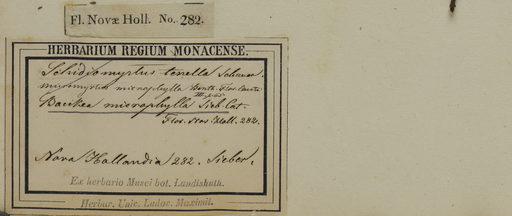 Fl. Novæ Holl. No. 282.
HERBARIUM REGIUM MONACENSE.
Schidiomyrtus tenella Schauer.
micromyrtus microphylla Benth. Flor. Austr.
Baeckea microphylla Sieb. Cat.
Flor. Nov. Holl. 282.
Nova Hollandia 282. Sieber.
Ex herbario Musei bot. Landishuth.
Herbar. Univ. Ludov. Maximil.